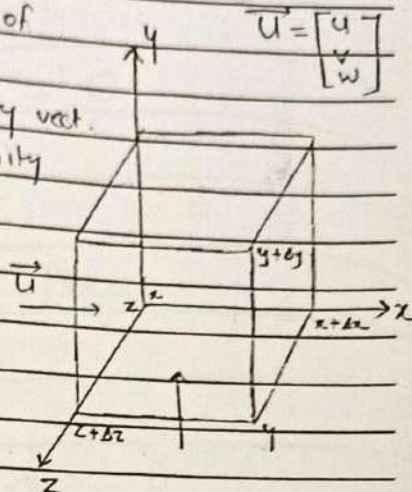 of
y
U = [u
v
w]
y vect.
ity
y+Δy
U
z x
x
x+Δx
z+Δz
y
z